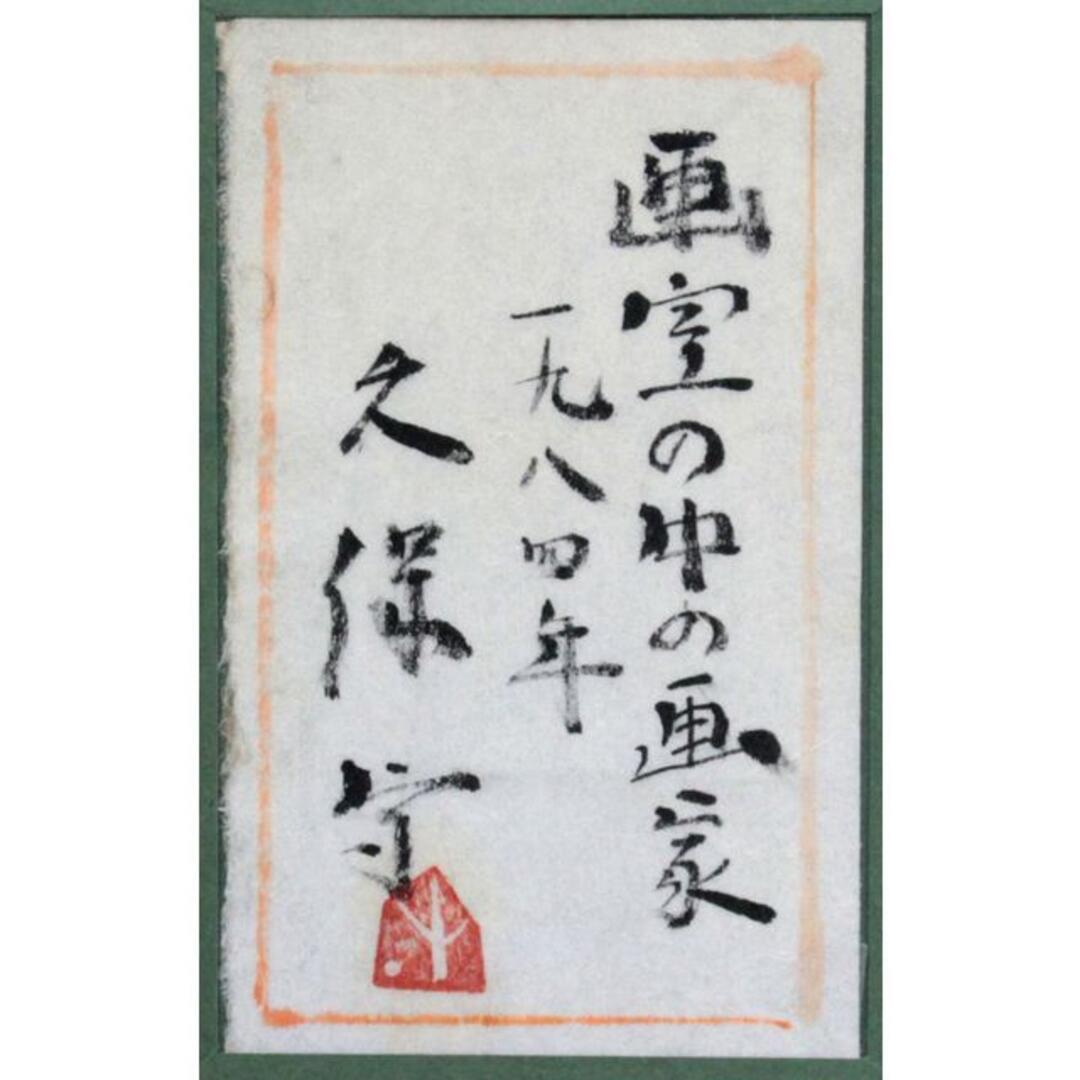 画室の中の画家
一九八四年
久保守